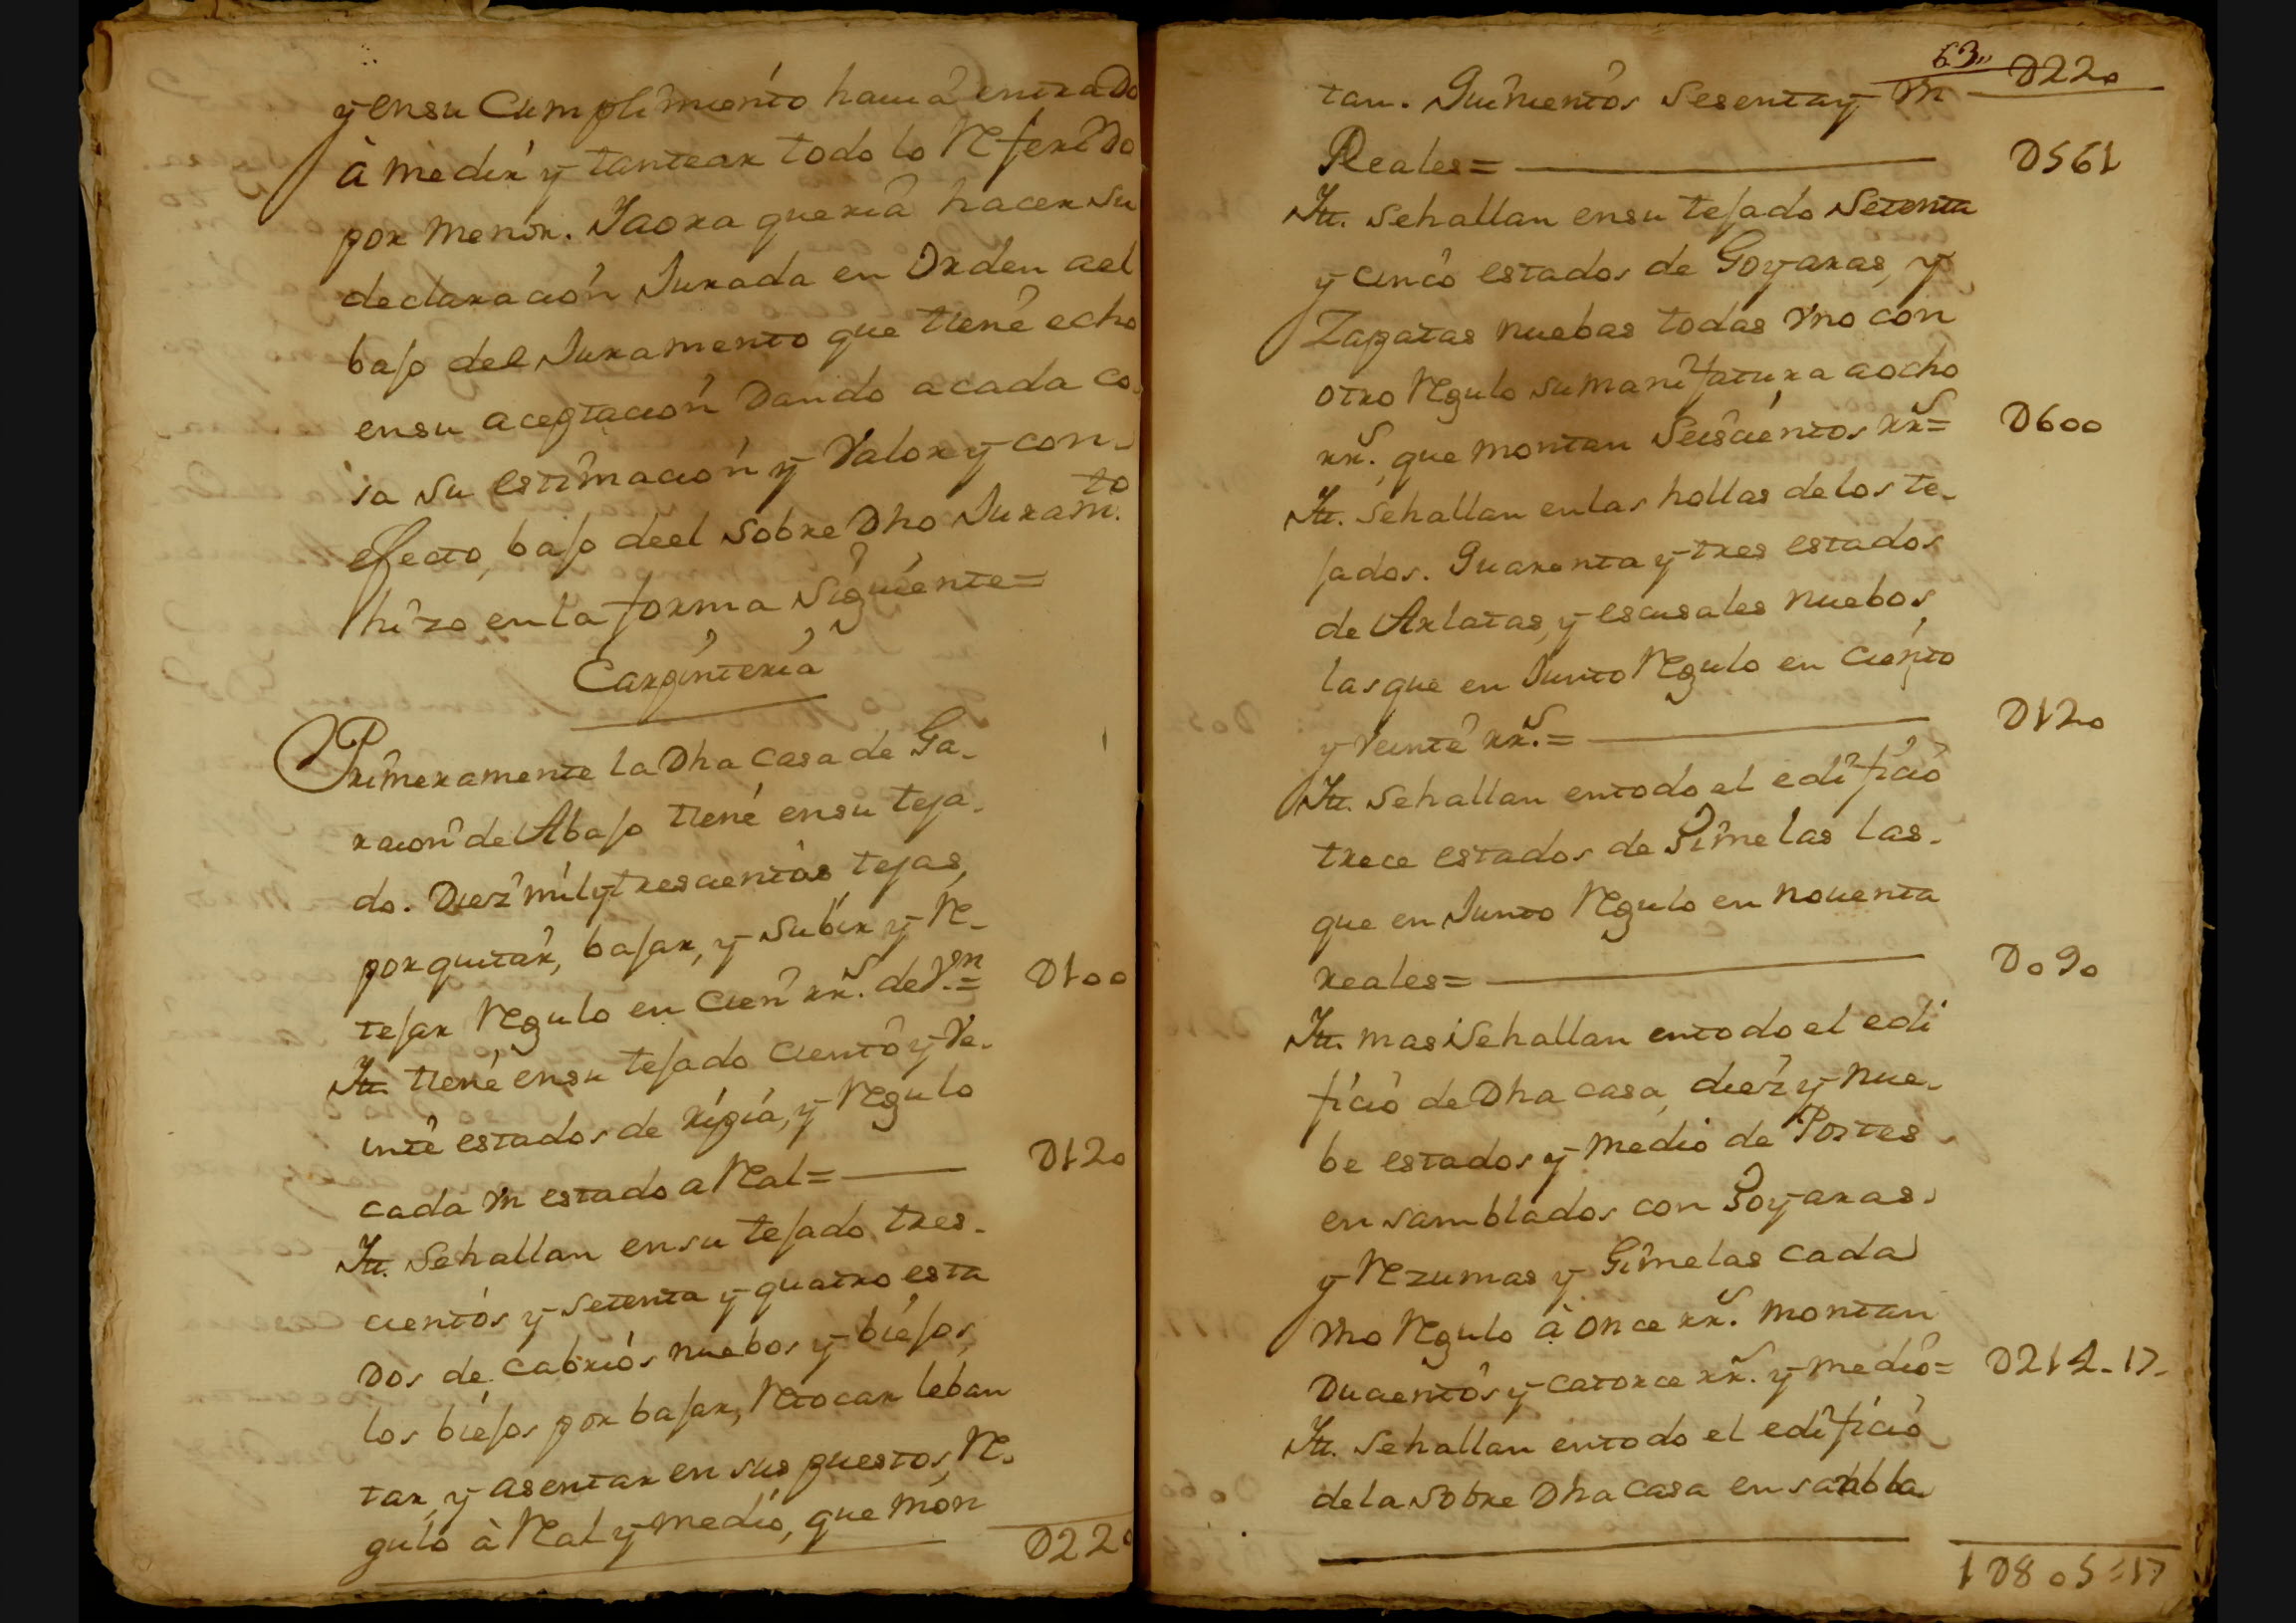 y ensu Cumplimiento hauia entrado
à medir y tantear todo lo Referido
por menor. Y aora queria hacer su
declaracion Jurada en Orden ael
bajo del Juramento que tiene echo
ensu aceptacion Dando a cada co
sa su estimacion y Valor y con-
efecto, bajo deel sobre Dho Juramto.
hizo en la forma siguiente=
Carpinteria
Primeramente la Dha casa de Ga-
racion de Abajo tiene ensu teja-
do. Diez mil y trescientas tejas,
por quitar, bajar, y subir y Re-
tejar Regulo en Cien rrs. de Vn= D100
Itt. tiene ensu tejado ciento y Ve-
inte estados de ripia, y Regulo
cada Vn estado a Real= D120
Itt. Sehallan ensu tejado, tres-
cientos y setenta y quatro esta
Dos de cabrios nuebos y biejos,
los biejos por bajar, Retocar leban
tar, y asentar en sus puestos, Re-
gulo à Real y medio, que mon
D220
63,,
D220
tan. Quinientos Sesenta y Vn
Reales= D561
Itt. sehallan ensu tejado Setenta
y cinco estados de Goyaras, y
Zapatas nuebas todas Vno con
otro Regulo su manifatura a ocho
rrs. que montan Seiscientos rrs= D600
Itt. Sehallan en las hollas de los te-
jados. Quarenta y tres estados
de Arlatas, y escusales nuebos,
las que en Junto Regulo en Ciento
y Veinte rrs.= D120
Itt. Sehallan entodo el edificio
trece estados de Gimelas las-
que en Junto Regulo en nouenta
reales= D090
Itt. mas Sehallan entodo el edi
ficio de Dha casa, diez y nue-
be estados y medio de Postes
ensamblados con Goyaras.
y Rezumas y Gimelas cada
Vno Regulo à once rrs. montan
Ducientos y catorce rrs. y medio= D214-17-
Itt. Sehallan entodo el edificio
de la sobre Dha casa ensambla
1D805=17